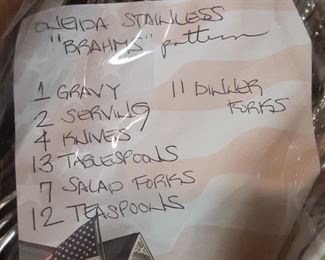 ONEIDA STAINLESS
"BRAHMS" pattern
1 GRAVY
2 SERVING
4 KNIVES
13 TABLESPOONS
7 SALAD FORKS
12 TEASPOONS
11 DINNER
FORKS